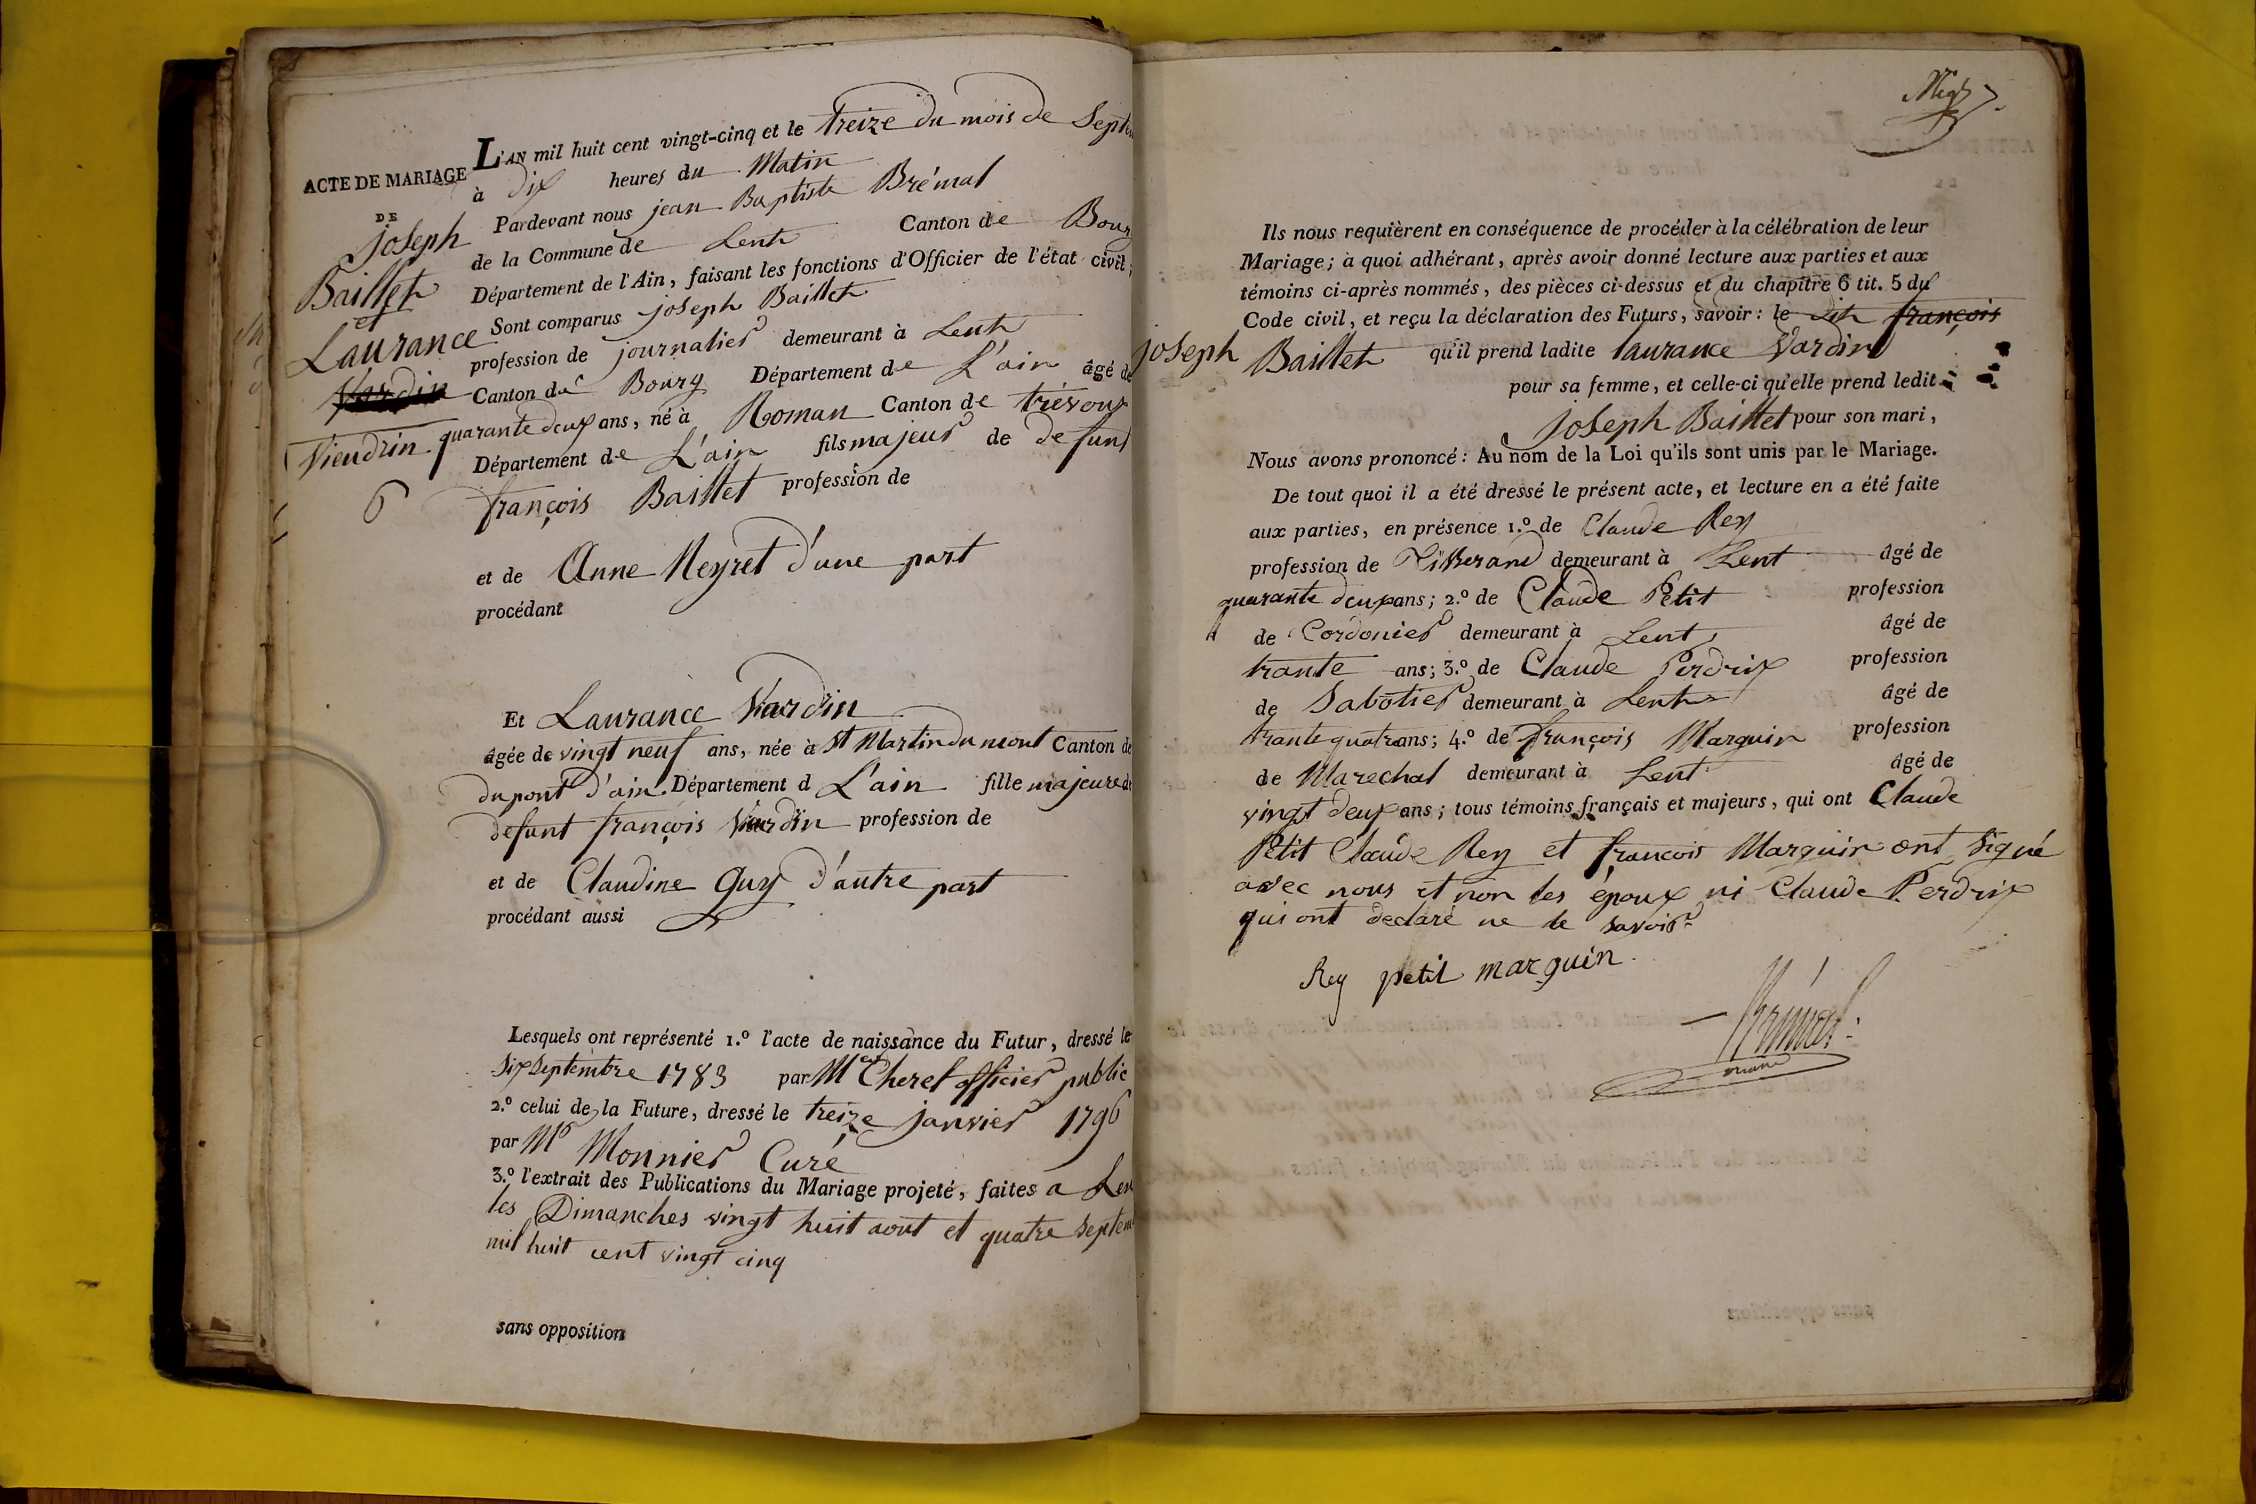 ACTE DE MARIAGE
DE
joseph
Baillet
et
Laurance
Viendrin
6
L'AN mil huit cent vingt-cinq et le treize du mois de Septe
à dix heures du Matin
Pardevant nous jean Baptiste Brémal
de la Commune de Lent Canton de Bourg
Département de l'Ain, faisant les fonctions d'Officier de l'état civil,
Sont comparus joseph Baillet
profession de journalier demeurant à Lent
Canton de Bourg Département de L'ain âgé de
quarante deux ans, né à Roman Canton de trévoux
Département de L'ain fils majeur de defunt
françois Baillet profession de
et de Anne Neyret d'une part
procédant
Et Laurance
âgée de vingt neuf ans, née à St Martin du mont Canton de
du pont d'ain Département d L'ain fille majeure de
defunt françois profession de
et de Claudine Guy d'autre part
procédant aussi
Lesquels ont représenté 1.º l'acte de naissance du Futur, dressé le
six septembre 1783 par Mr Cheret officier public
2.º celui de la Future, dressé le treize janvier 1796
par Mr Monnier Curé
3.º l'extrait des Publications du Mariage projeté, faites a Len
les Dimanches vingt huit aout et quatre septem
mil huit cent vingt cinq
sans opposition
Ils nous requièrent en conséquence de procéder à la célébration de leur
Mariage; à quoi adhérant, après avoir donné lecture aux parties et aux
témoins ci-après nommés, des pièces ci-dessus et du chapitre 6 tit. 5 du
Code civil, et reçu la déclaration des Futurs, savoir: le dit françois
joseph Baillet qu'il prend ladite laurance Vardin
pour sa femme, et celle-ci qu'elle prend ledit
joseph Baillet pour son mari,
Nous avons prononcé: Au nom de la Loi qu'ils sont unis par le Mariage.
De tout quoi il a été dressé le présent acte, et lecture en a été faite
aux parties, en présence 1.º de Claude Rey
profession de Tisserand demeurant à Lent âgé de
quarante deux ans; 2.º de Claude Petit profession
de Cordonier demeurant à Lent âgé de
trante ans; 3.º de Claude Perdrix profession
de Sabotier demeurant à Lent âgé de
trante quatre ans; 4.º de françois Marquin profession
de Marechal demeurant à Lent âgé de
vingt deux ans; tous témoins français et majeurs, qui ont Claude
Petit Claude Rey et francois Marquin ont signé
avec nous et non les époux ni Claude Perdrix
qui ont declaré ne le savoir
Rey petit marquin
Brémal